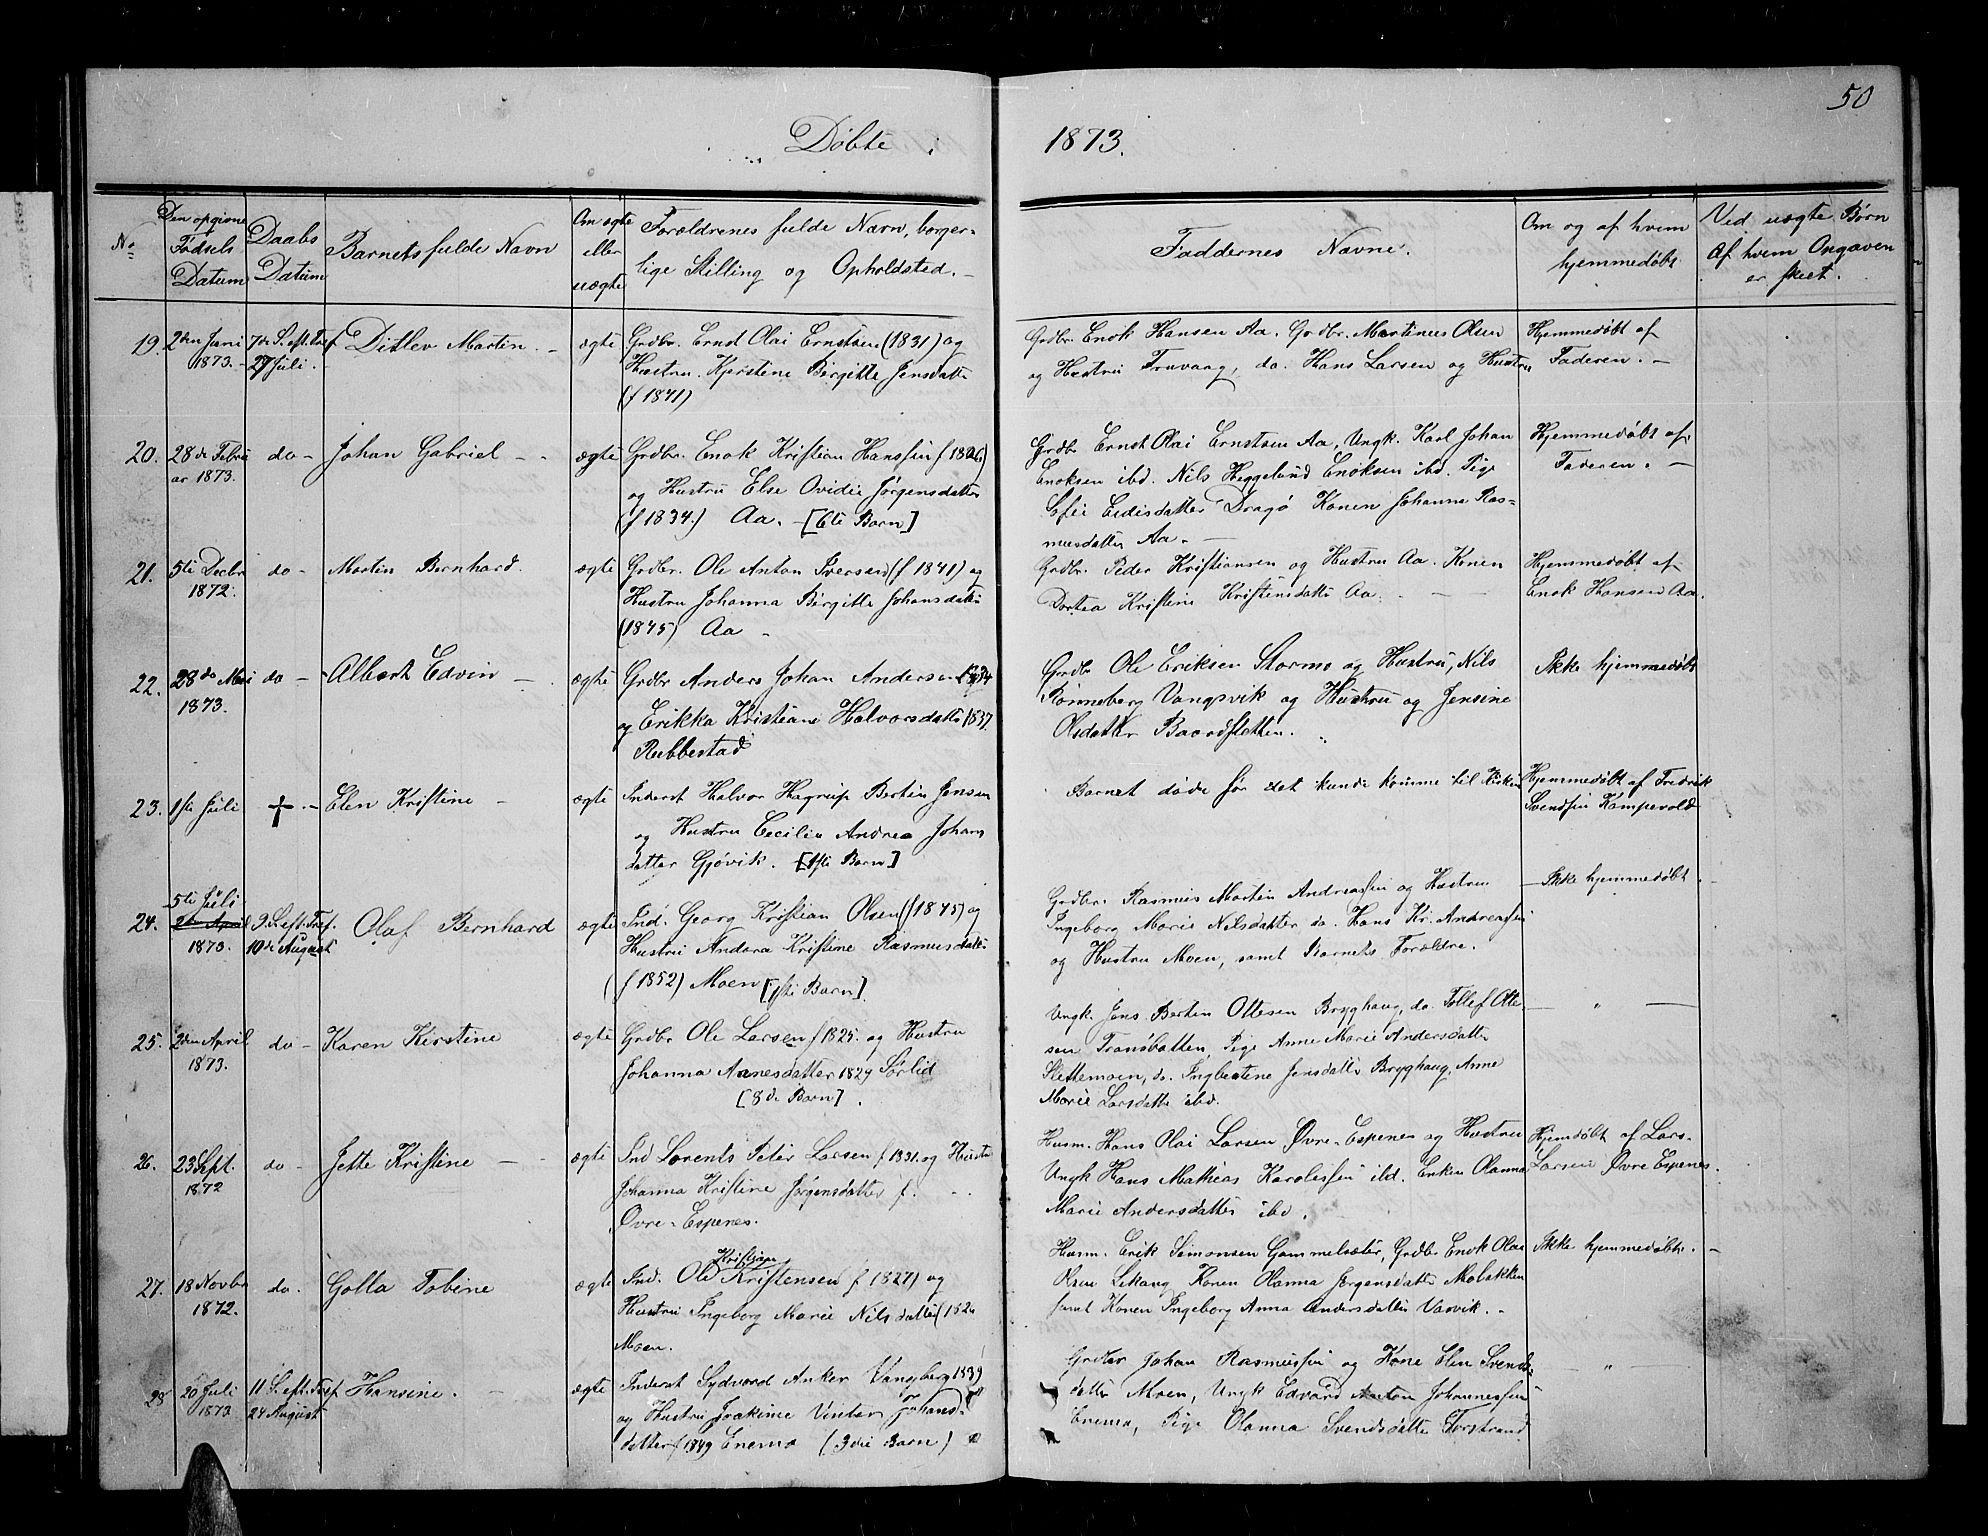 50
Døbte i 1873.
No
Den opgivne Fødsels Datum
Daabs Datum
Barnets fulde Navn
Om ægte eller uægte
Forældrenes fulde Navn, borgerlige Stilling og Opholdsted.
Faddernes Navne.
Om og af hvem hjemmedøbt
Ved uægte Børn Af hvem Opgaven er skeet.
19. 2den Juni 7de S. eft. Tref Ditlev Martin. – ægte Grdbr. Ernst Olai Ernstsen (1831) og
1873. – 27 Juli. Hustru Kjerstine Birgitte Jensdatt
(f 1841)
Grdbr. Enok Hansen Aa. Grdbr. Martinus Olsen Hjemmedøbt af
og Hustru Truvaag, do. Hans Larsen og Hustru Faderen. –
20. 28de Febru do – Johan Gabriel – ægte Grdbr. Enok Kristian Hanssen f 1826)
ar 1873. og Hustru Else Ovidie Jørgensdatter
(f 1834.) Aa. – [6te Barn]
Grdbr Ernst Olai Ernstsen Aa, Ungk. Karl Johan Hjemmedøbt af
Enoksen ibd. Nils Heggelund Enoksen ibd. Pige Faderen. –
Sofie Eidisdatter Dragø Konen Johanna Ras-
musdatter Aa. –
21. 5te Decbr do – Martin Bernhard. ægte Grdbr. Ole Anton Iversen (f 1841) og
1872. Hustru Johanna Birgitte Johansdatter
(1845) Aa –
Grdbr. Peder Kristiansen og Hustru Aa. Konen Hjemmedøbt af
Dortea Kristine Kristensdatt Aa. – Enok Hansen Aa.
22. 28de Mai do – Albert Edvin – ægte Grdbr Anders Johan Andersen 1834
1873. og Erikka Kristiane Halvorsdatter 1837.
Rubbestad
Grdbr Ole Eriksen Stormo og Hustru, Nils Ikke hjemmedøbt
Rønneberg Vangsvik og Hustru og Jensine
Olsdatter Baardsletten.
23. 1ste Juli † – Elen Kristine – ægte Inderst Halvor Hagrup Bertin Jensen
og Hustru Cecilie Andrea Johans
datter Gjøvik. [1ste Barn]
Barnet døde før det kunde komme til Kirken Hjemmedøbt af Fredrik
Svendsen Kampevold
5te Juli
24. 2den April 9 S. eft. Tref. Olaf Bernhard ægte Ind. Georg Kristian Olsen (f 1845) og
1873. 10de August Hustru Andora Kristine Rasmusdatter
(f 1852) Moen [1ste Barn].
Grdbr. Rasmus Martin Andreassen og Hustru – Ikke hjemmedøbt.
Ingeborg Marie Nilsdatter do. Hans Kr. Andreassen
og Hustru Moen, samt Barnets Forældre.
25. 2den April do – Karen Kirstine ægte Grdbr Ole Larsen f 1825. og Hustru
1873. Johanna Aanesdatter 1829 Sørlid
[8de Barn].
Ungk. Jens Bertin Ottesen Brygghaug, do. Tollef Otte- – " –
sen Transbatten, Pige Anne Marie Andersdatter
Slettemoen, do. Ingbertine Jensdatter Brygghaug, Anne
Marie Larsdatter ibd.
26. 23 Sept. do – Jette Kristine – ægte Ind Lorents Peter Larsen f 1831. og Hustr
1872 Johanna Kristine Jørgensdatter f.
Øvre-Espenes.
Husm. Hans Olai Larsen Øvre-Espenes og Hustru Hjemdøbt af Lars
Ungk Hans Mathias Karolissen ibd. Enken Olanna Larsen Øvre Espenes.
Marie Andersdatter ibd.
Kristian
27. 18 Novbr do. Golla Tobine ægte Ind. Ole Kristensen f 1827) og
1872. Hustru Ingeborg Marie Nilsdatter (182
Moen.
Husm. Erik Simonsen Gammelsæter, Grdbr Enok Olai Ikke hjemmedøbt. –
Olsen Lekang Konen Olanna Jørgensdatter Molakken
samt Konen Ingeborg Anna Andersdatter Vasvik. –
28 20 Juli 11 S. eft. Tref. Hansine. – ægte Inderst Sydvard Anker Vangberg 1839
1873 24 August og Hustru Joakime Vinter Johans-
datter f 1849 Enemo (3die Barn)
Grdbr Johan Rasmussen og Kone Elen Svends- – " –
datter Moen, Ungk Edvard Anton Johannessen
Enemo, Pige Olanna Svendsdatter Forstrand